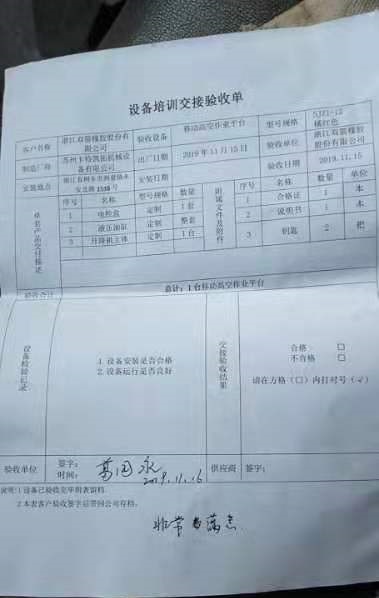 设备培训交接验收单
客户名称 浙江双箭橡胶股份有限公司 验收设备 移动高空作业平台 型号规格 SJY1-12 橘红色
制造厂商 苏州卡特凯拓机械设备有限公司 出厂日期 2019年11月15日 验收单位 浙江双箭橡胶股份有限公司
安装地点 安装日期 验收日期 2019.11.15
序号 名称 型号规格 数量 附属文件及附件 序号 名称 数量 单位
1 电控盒 定制 1套 1 合格证 1 本
2 液压油缸 定制 整套 2 说明书 1 本
3 升降机主体 定制 1台 3 钥匙 2 把
验收合计 总计:1台移动高空作业平台
设备检验记录
1.设备安装是否合格
2.设备运行是否良好
交接验收结果
合格 □
不合格 □
请在方格(□)内打对号(√)
验收单位 签字: 葛国永
时间: 2019.11.16
供应商 签字:
说明:1设备已验收完毕附表留档
2本表客户验收签字后带回公司存档。
非常满意